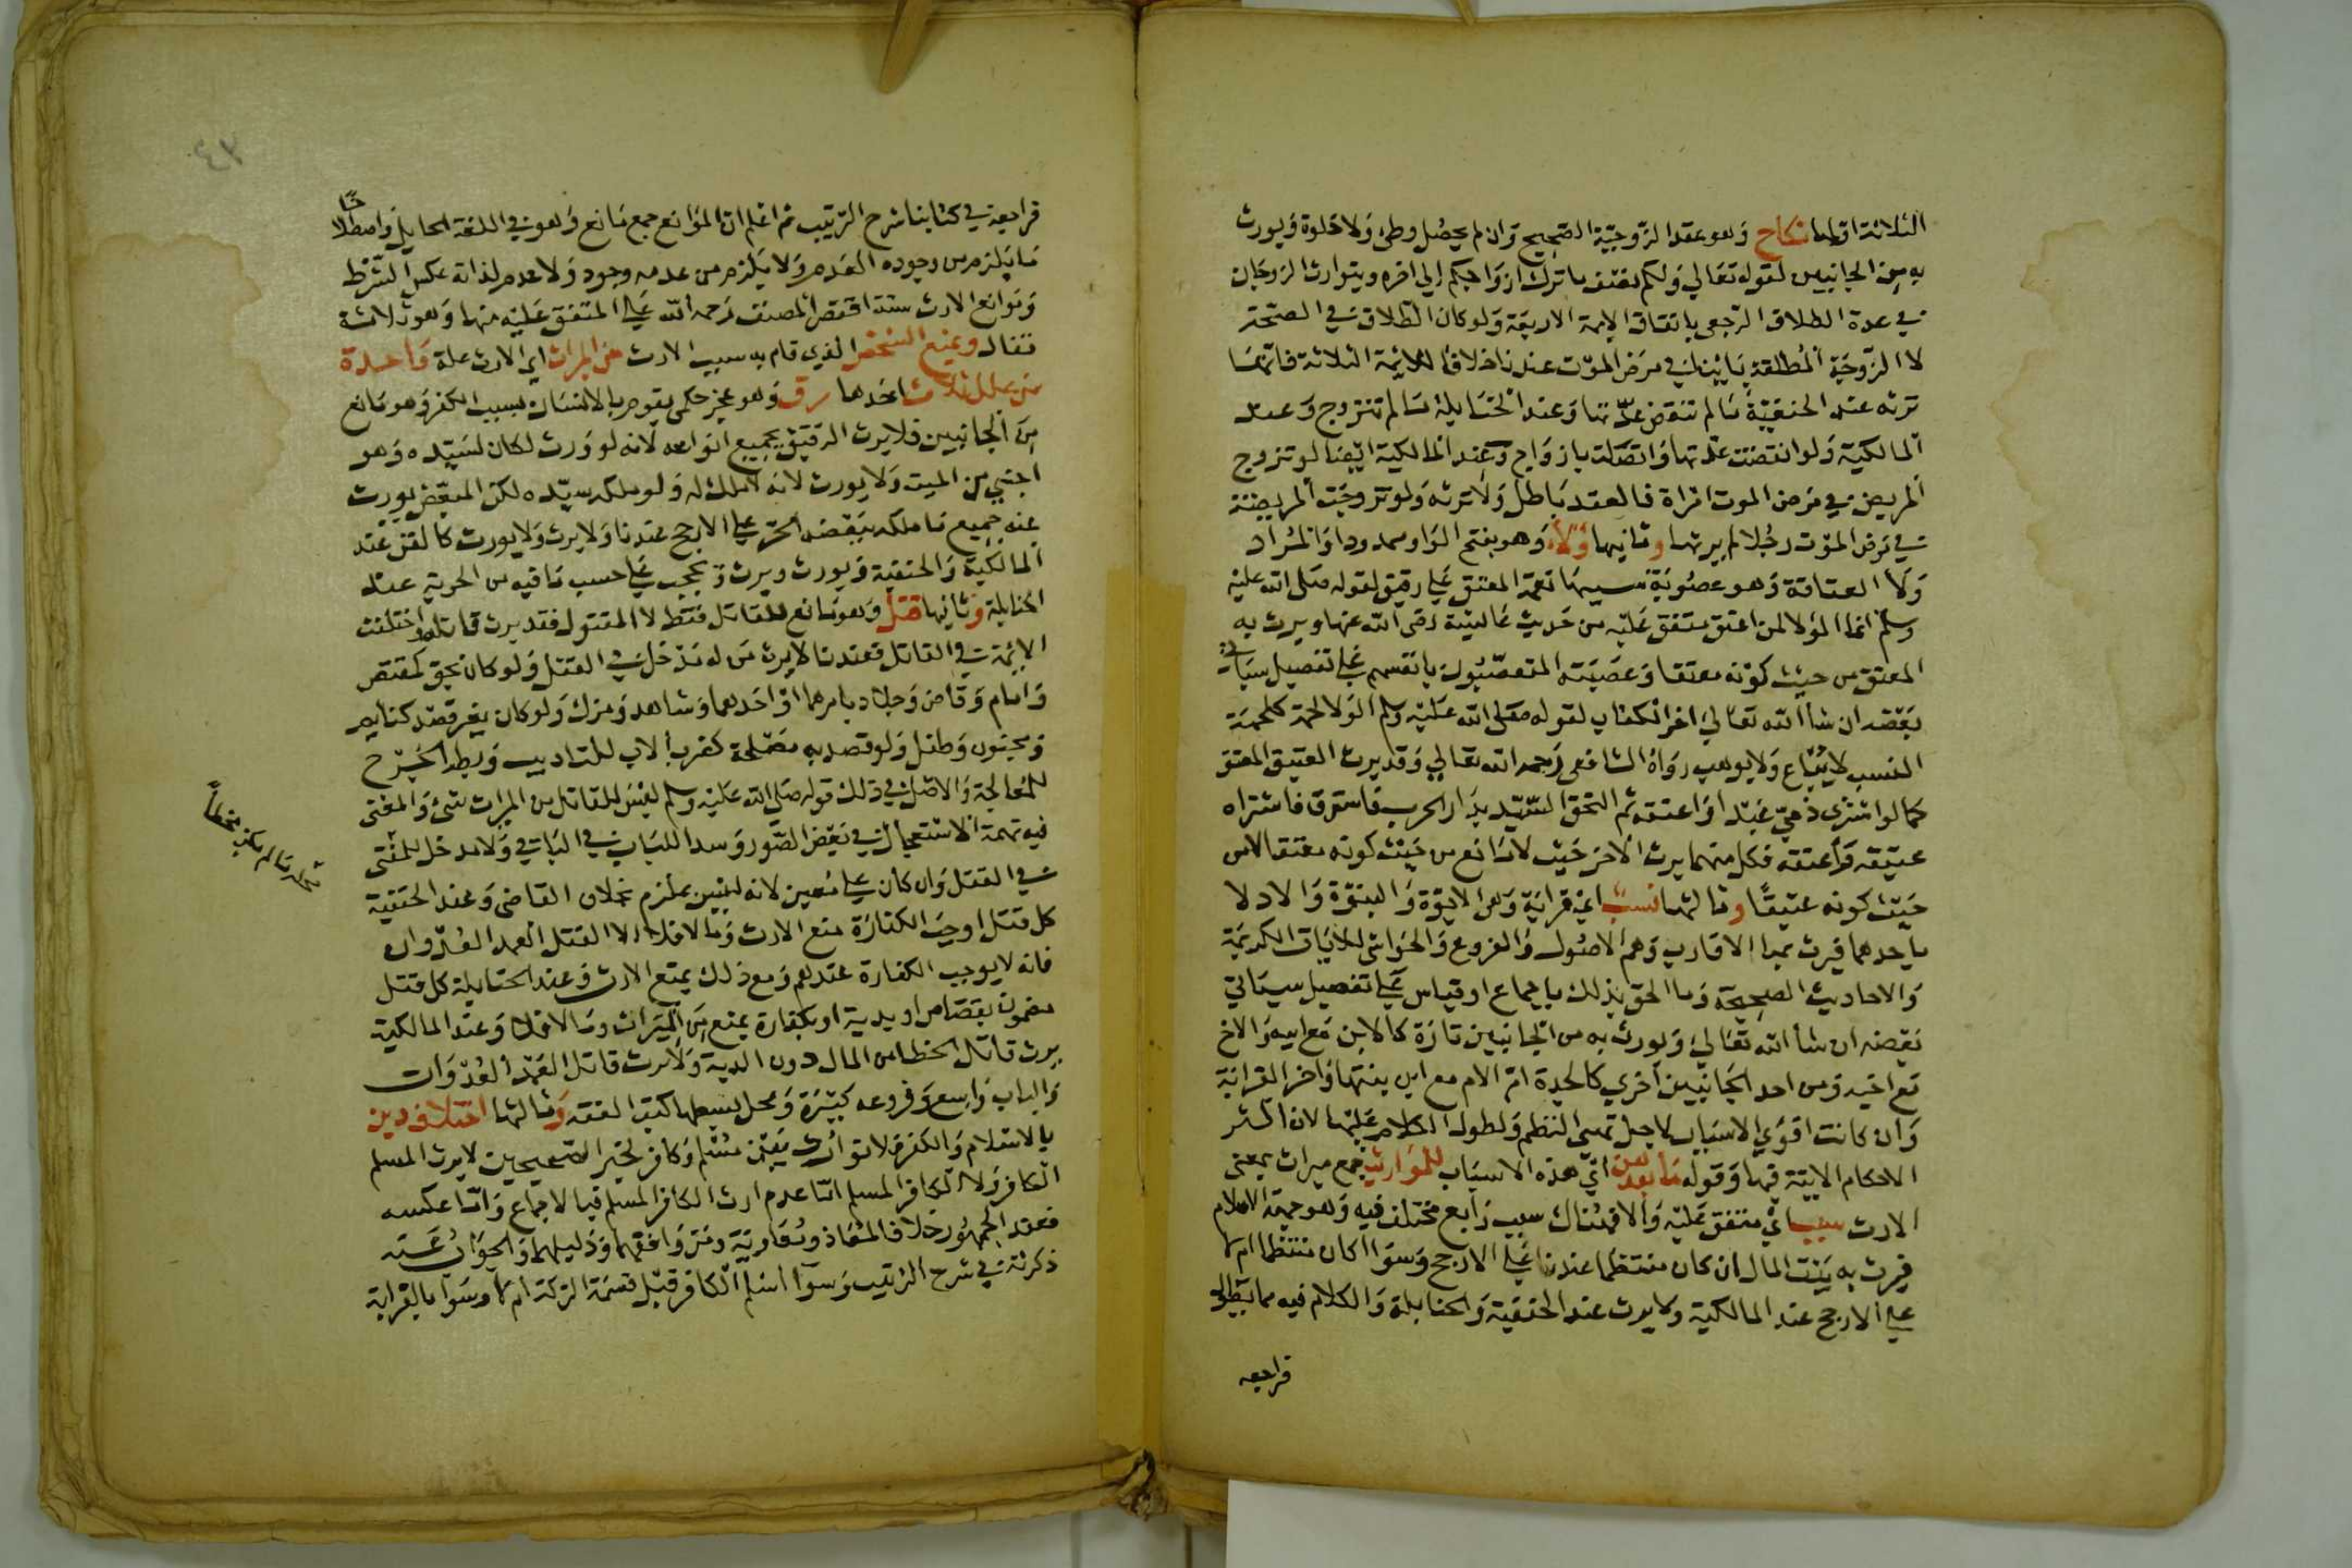 الثلاثة اولها نكاح وهو عقد الزوجية الصحيح وان لم يحصل وطئ ولا خلوة ويورث
به من الجانبين لقوله تعالي ولكم نصف ما ترك ازواجكم الي اخره ويتوارث الزوجان
في عدة الطلاق الرجعي باتفاق الايمة الاربعة ولو كان الطلاق في الصحة
لا الزوجة المطلقة باينا في مرض الموت عندنا خلافا للايمة الثلاثة فانها
ترثه عند الحنفية ما لم تنقض عدتها وعند الحنابلة ما لم تتزوج وعند
المالكية ولو انقضت عدتها واتصلت بازواج وعند المالكية ايضا لو تزوج
المريض في مرض الموت امراة فالعقد باطل ولا ترثه ولو تزوجت المريضة
في مرض الموت رجلا لم يرثها وثانيها ولاء وهو بفتح الواو ممدودا والمراد
ولا العتاقة وهو عصوبة سببها نعمة المعتق علي رقيق لقوله صلى الله عليه
وسلم انما الولا لمن اعتق متفق عليه من حديث عايشة رضى الله عنها ويرث به
المعتق من حيث كونه معتقا وعصبته المتعصبون بانفسهم علي تفصيل سياتي
بعضه ان شا الله تعالي اخر الكتاب لقوله صلى الله عليه وسلم الولا لحمة كلحمة
النسب لا يباع ولا يوهب رواه الشافعى رحمه الله تعالي وقد يرث العتيق المعتق
كما لو اشترى ذمي عبدا واعتقه ثم التحق السيد بدار الحرب فاسترق فاشتراه
عتيقه واعتقه فكل منهما يرث الاخر حيث لا مانع من حيث كونه معتقا لا من
حيث كونه عتيقا وثالثها نسب اي قرابة وهى الابوة والبنوة والادلا
باحدهما فيرث بها الاقارب وهم الاصول والفروع والحواشي للايات الكريمة
والاحاديث الصحيحة وما الحق بذلك باجماع او قياس علي تفصيل سياتي
بعضه ان شا الله تعالي ويورث به من الجانبين تارة كالابن مع ابيه والاخ
مع اخيه ومن احد الجانبين اخري كالجدة ام الام مع ابن بنتها واخر القرابة
وان كانت اقوي الاسباب لاجل تمييز النظم ولطول الكلام عليها لان اكثر
الاحكام الاتية فيها وقوله ما بعدهن اي هذه الاسباب للمواريث جمع ميراث بمعنى
الارث سبب اي متفق عليه والا فهناك سبب رابع مختلف فيه وهو جهة الاسلام
فيرث به بيت المال ان كان منتظما عندنا علي الارجح وسوا اكان منتظما ام لا
علي الارجح عند المالكية ولا يرث عند الحنفية والحنابلة والكلام فيه مما يطول
فراجعه
٤٣
فراجعه في كتابنا شرح الترتيب ثم اعلم ان الموانع جمع مانع وهو في اللغة الحايل واصطلاحا
ما يلزم من وجوده العدم ولا يلزم من عدمه وجود ولا عدم لذاته عكس الشرط
وموانع الارث ستة اقتصر المصنف رحمه الله علي المتفق عليه منها وهو ثلاثة
فقال ويمنع الشخص الذي قام به سبب الارث من الميراث اي الارث علة واحدة
من علل ثلاث احدها رق وهو عجز حكمى يقوم بالانسان بسبب الكفر وهو مانع
من الجانبين فلا يرث الرقيق بجميع انواعه لانه لو ورث لكان لسيده وهو
اجنبي من الميت ولا يورث لانه لا ملك له ولو ملكه سيده لكن المبعض يورث
عنه جميع ما ملكه ببعضه الحر علي الارجح عندنا ولا يرث ولا يورث كالقن عند
المالكية والحنفية ويورث ويرث ويحجب علي حسب ما فيه من الحرية عند
الحنابلة وثانيها قتل وهو مانع للقاتل فقط لا المقتول فقد يرث قاتله واختلفت
الايمة في القاتل فعندنا لا يرث من له مدخل في القتل ولو كان بحق كمقتص
وامام وقاض وجلاد بامرهما او احدهما وشاهد ومزك ولو كان بغير قصد كنايم
ومجنون وطفل ولو قصد به مصلحة كضرب الاب للتاديب وبط الجرح
للمعالجة والاصل في ذلك قوله صلى الله عليه وسلم ليس للقاتل من الميراث شئ والمعنى
فيه تهمة الاستعجال في بعض الصور وسدا للباب في الباقي ولا مدخل للمفتى
في القتل وان كان علي معين لانه ليس بملزم بخلاف القاضى وعند الحنفية
كل قتل اوجب الكفارة منع الارث وما لا فلا الا القتل العمد العدوان
فانه لا يوجب الكفارة عندهم ومع ذلك يمنع الارث وعند الحنابلة كل قتل
مضمون بقصاص او بدية او بكفارة يمنع من الميراث وما لا فلا وعند المالكية
يرث قاتل الخطا من المال دون الدية ولا يرث قاتل العمد العدوان
والباب واسع وفروعه كثيرة ومحل بسطها كتب الفقه وثالثها اختلاف دين
بالاسلام والكفر فلا توارث بين مسلم وكافر لخبر الصحيحين لا يرث المسلم
الكافر ولا الكافر المسلم اما عدم ارث الكافر المسلم فبالاجماع واما عكسه
فعند الجمهور خلافا لمعاذ ومعاوية ومن وافقهما ودليلهما والجواب عنه
ذكرته في شرح الترتيب وسوا اسلم الكافر قبل قسمة التركة ام لا وسوا بالقرابة